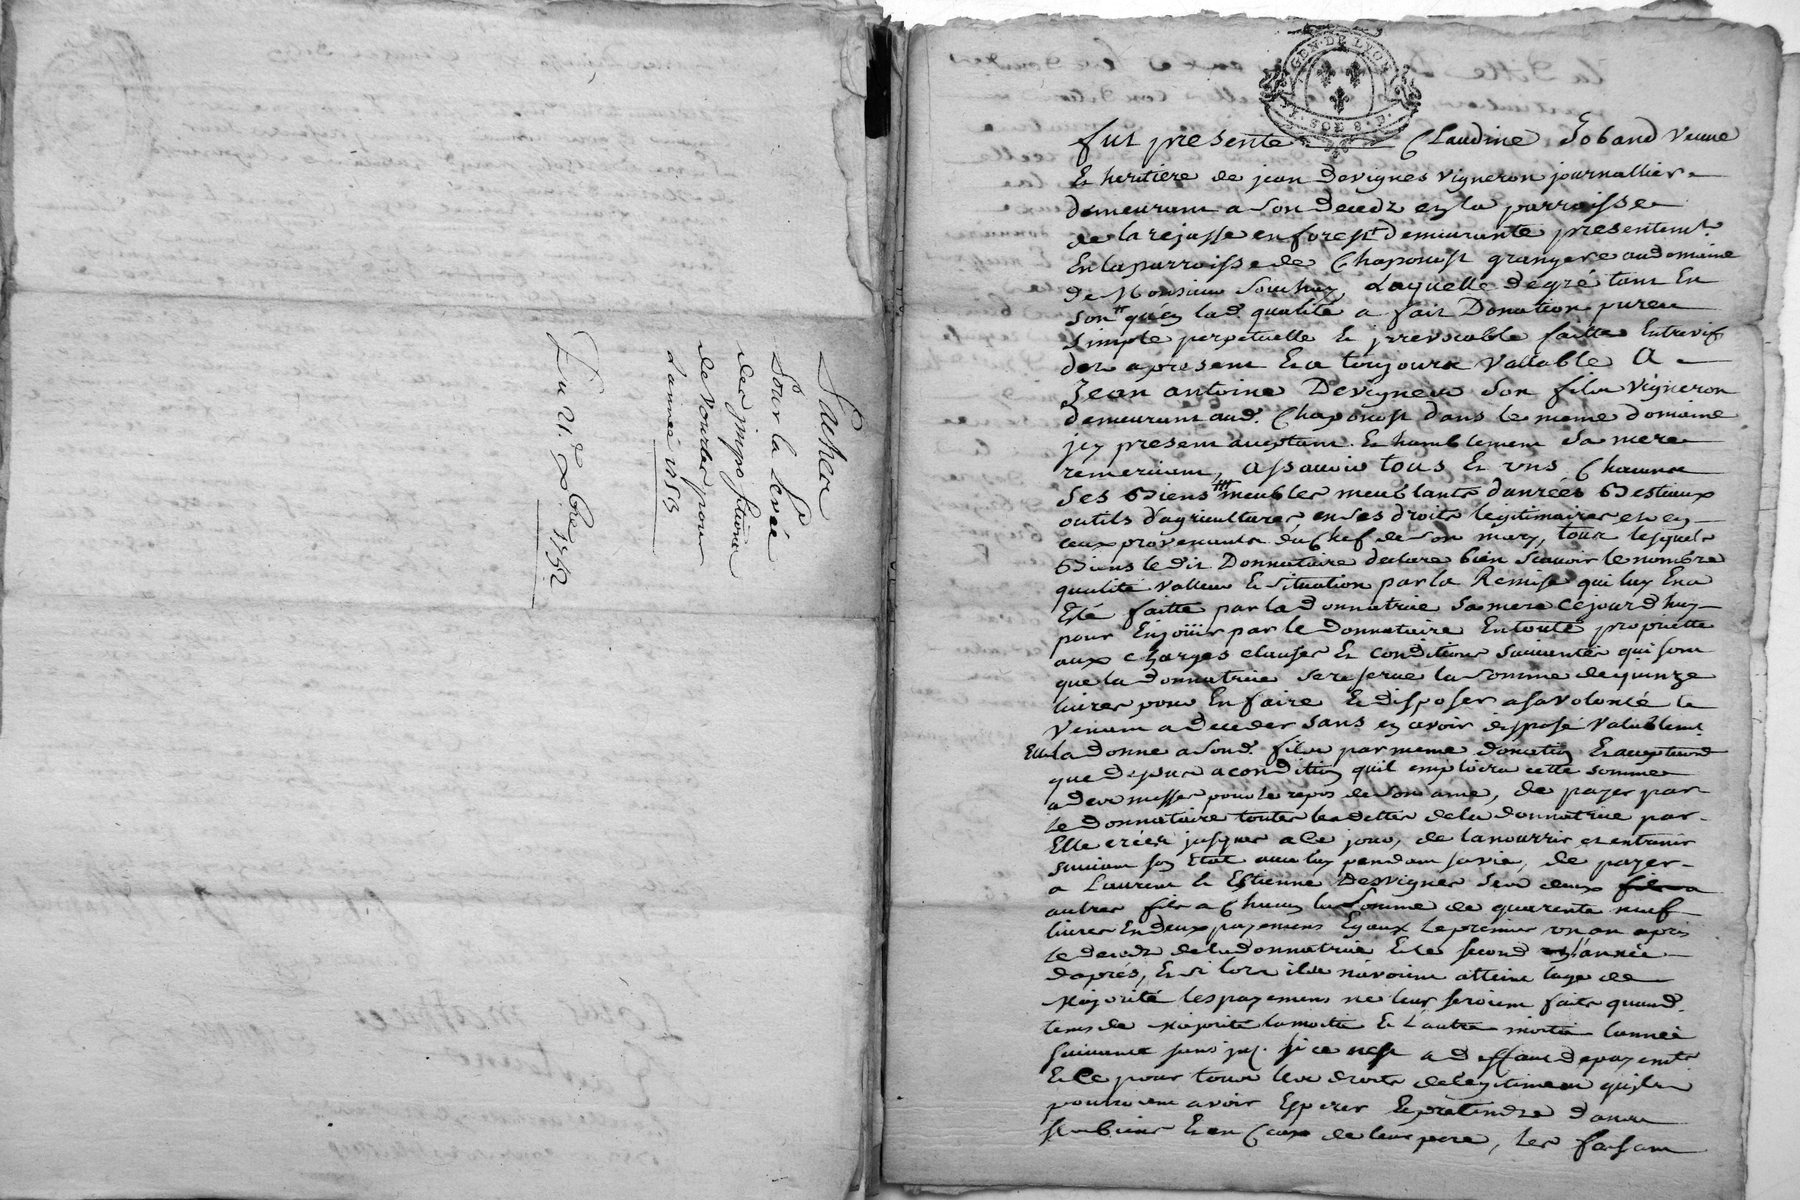 Pour la Levée
des impositions
de Vourles pour
L'année 1753
Du 21.e Xbre 1752
GEN. DE LYON
fut presente Claudine Joband veuve
Et heritiere de jean Devignes vigneron journallier
demeurant a son decedz en la parroisse
de larejasse en forest demeurante presentemt
En la parroisse de Chaponost grangere au domaine
De Monsieur Laquelle degré tant En
son qu'en lad. qualité a fait Donation pure
simple perpetuelle Et jrrevocable faitte Entrevifs
des apresent Et a toujours vallable A
Jean antoine Devignes son fils vigneron
demeurant aud. Chaponost dans le meme domaine
jcy present acceptant Et humblement sa mere
remerciant, assavoir tous Et uns Chacuns
ses Biens meubles meublants danrées Bestiaux
outils d'agricultures, en ses droits legitimaires et en
ceux provenants du Chef de son mary, tous lesquels
Biens le dit Donnataire declare bien scavoir le nombre
qualité valleur Et situation par la Remise qui luy En a
Eté faitte par la donnatrice sa mere cejourdhuy
pour En joüir par le donnataire En toute proprietté
aux charges clauses Et conditions suivantes qui sont
que la donnatrice se reserve la somme de quinze
livres pour En faire Et disposer a sa volonté Et
venant a deceder sans en avoir disposé valablemt
Elle la donne a sond. fils par meme donation Et acceptaond
que dessus a condition quil emploiera cette somme
a des messes pour le repos de son ame, de payer par
le donnataire toutes les dettes de la donnatrice par
Elle créés jusques a ce jour, de la nourrir et entretenir
suivant son Etat avec luy pendant sa vie, de payer
a Laurent Et Estienne Desvignes ses deux
autres fils a Chacun la somme de quarente neuf
livres En deux payemens Egaux le premier un an apres
le decedz de la donnatrice Et le second l'année
d'aprés, Et si lors ils n'avoient atteint l'age de
Majorité les payemens ne leur seroient faits quaud.
tems de Majorité la moitié Et L'autre moitié l'année
suivante sans jnt. si ce nest a deffaut de payemts
Et Ce pour tous les droits de legitime quils
pourroient avoir Esperer Et prétendre dans
ses biens Et en Ceux de leur pere, les faisant